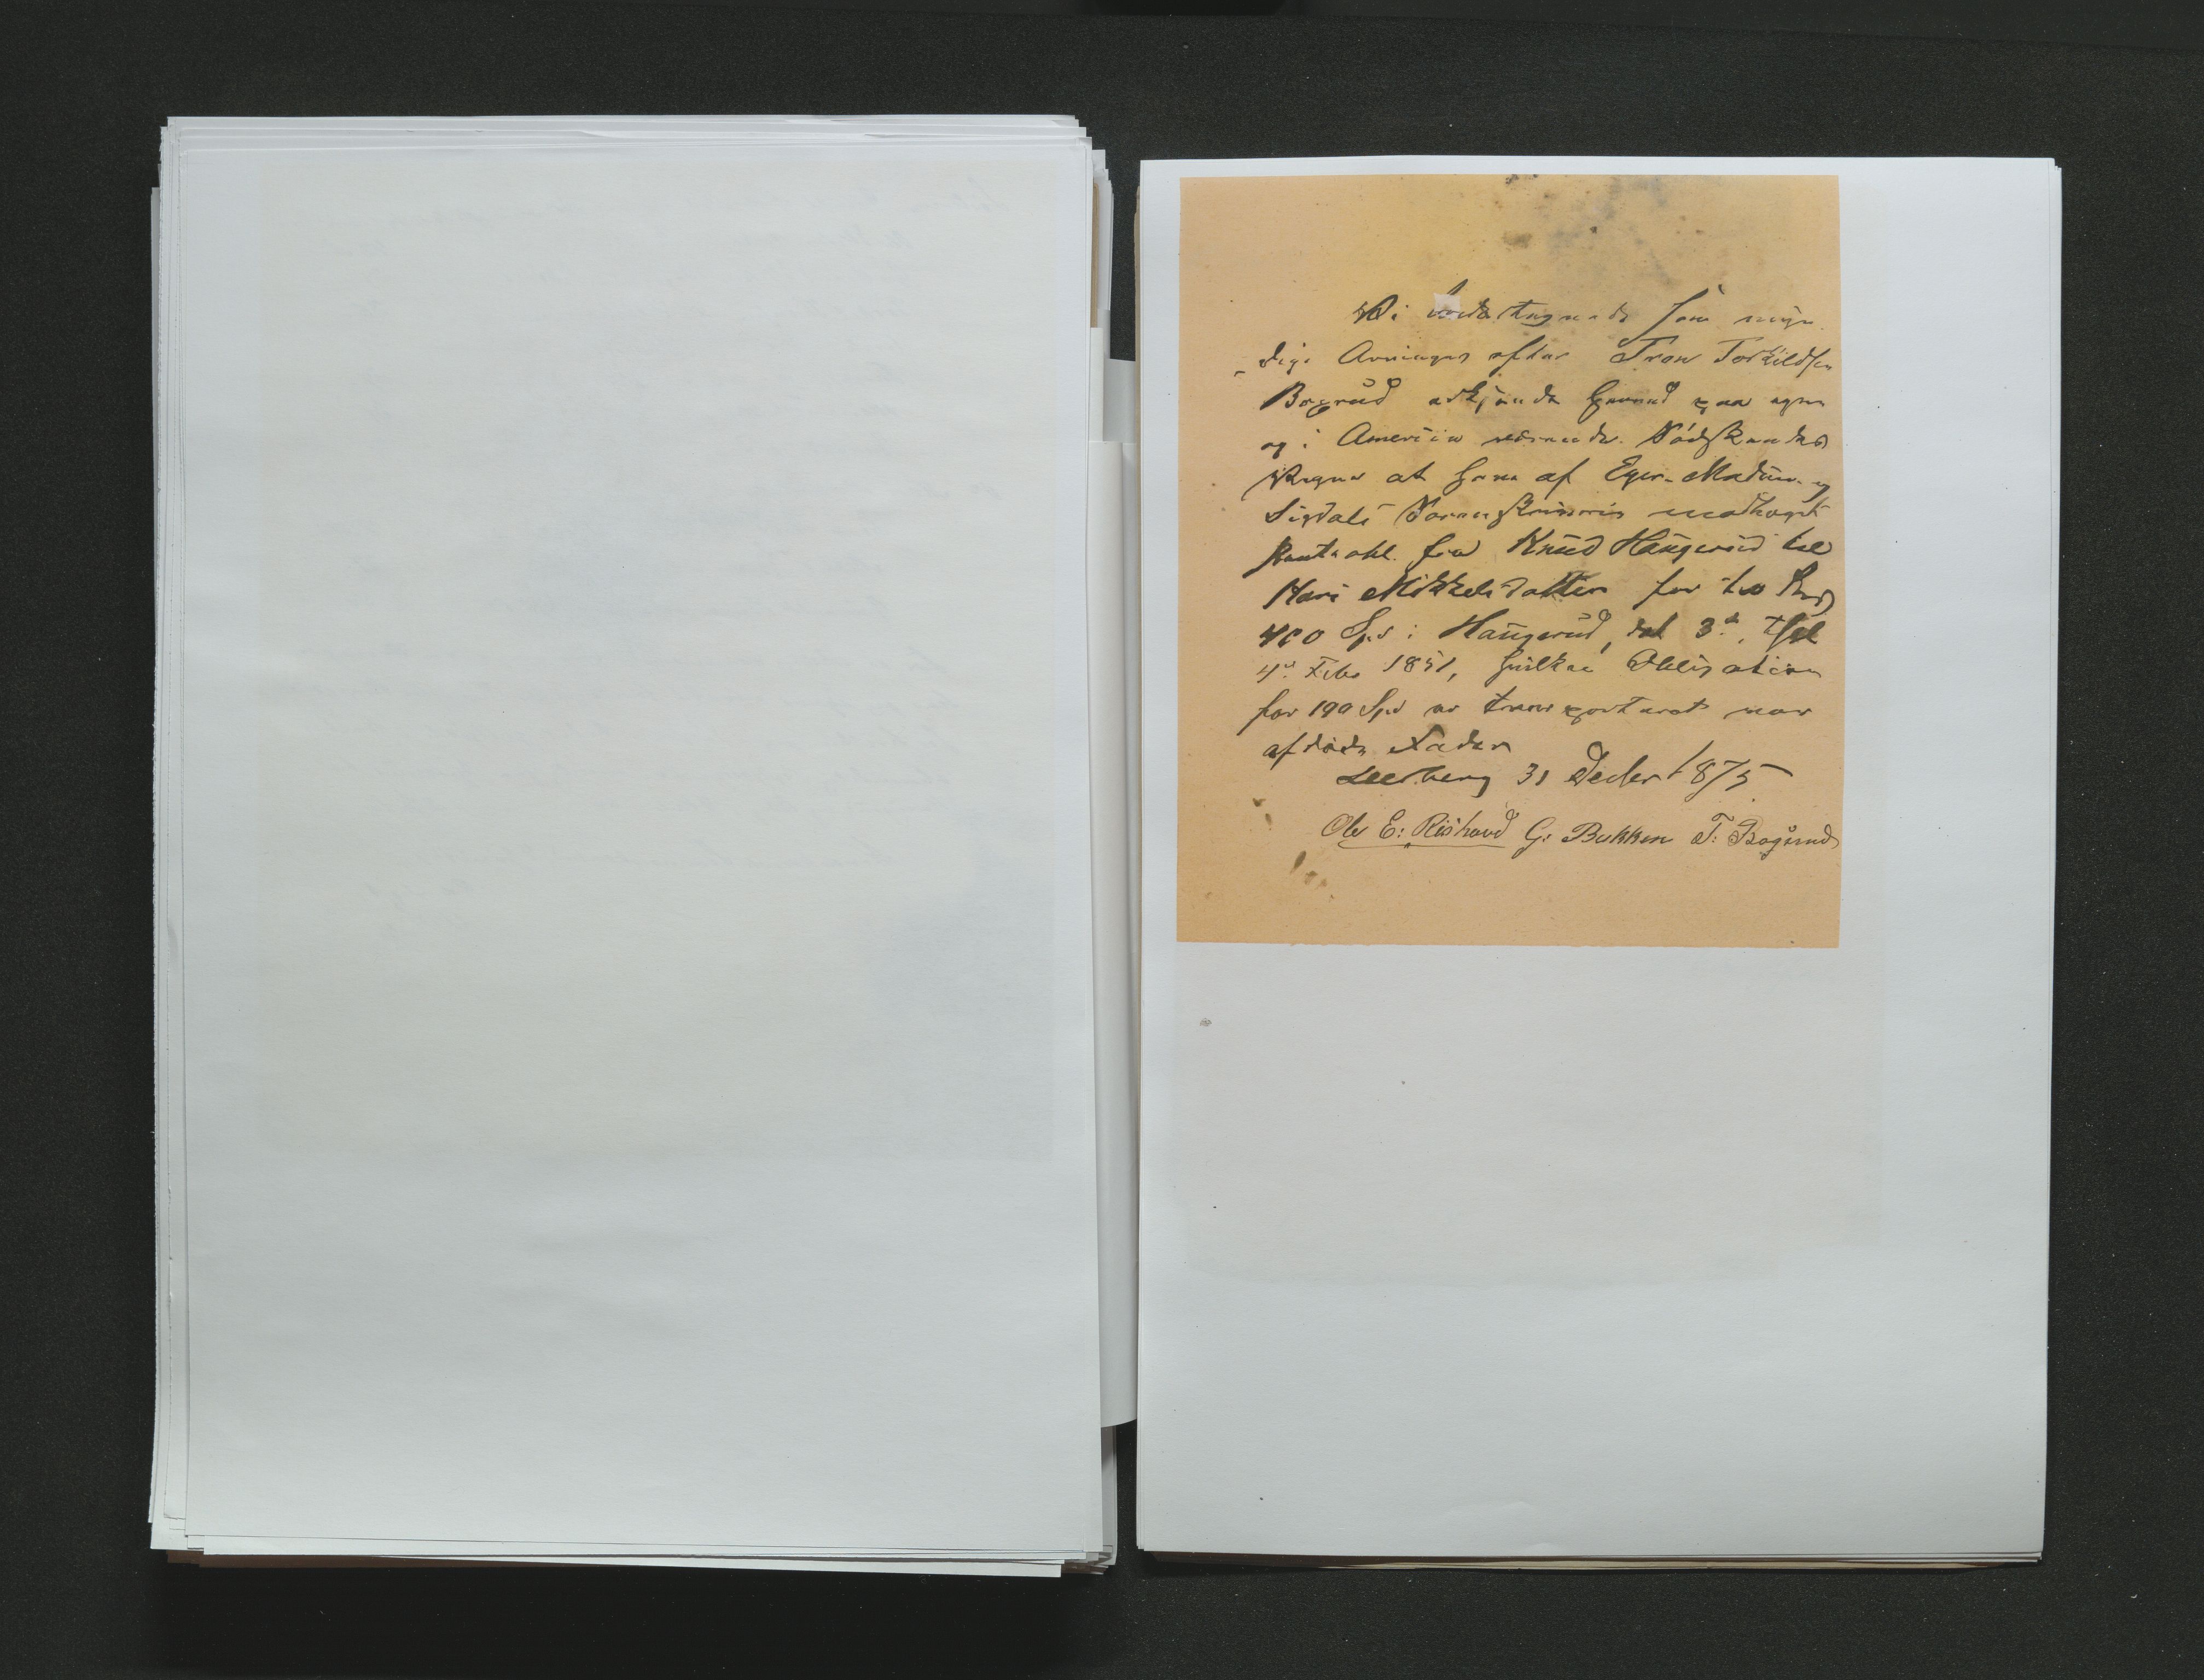 Vi undertegnede som myn-
dige Arvinger efter Tron Torkildsen
Bogrud erkjende herved paa egne
og i America værende Södskendes
Vegne at have af Eger- Modum- og
Sigdals Sorenskriverie modtaget
Pantobl. fra Knud Haugerud til
Kari Mikkelsdatter for
400 Spd i Haugerud, dat 3d. tgl
4d Febr 1851, hvilken Obligation
for 190 Spd er transporteret vor
afdöde Fader
31 Decbr 1875
Ole E: Rishovd G: Bakken T: Bogerud